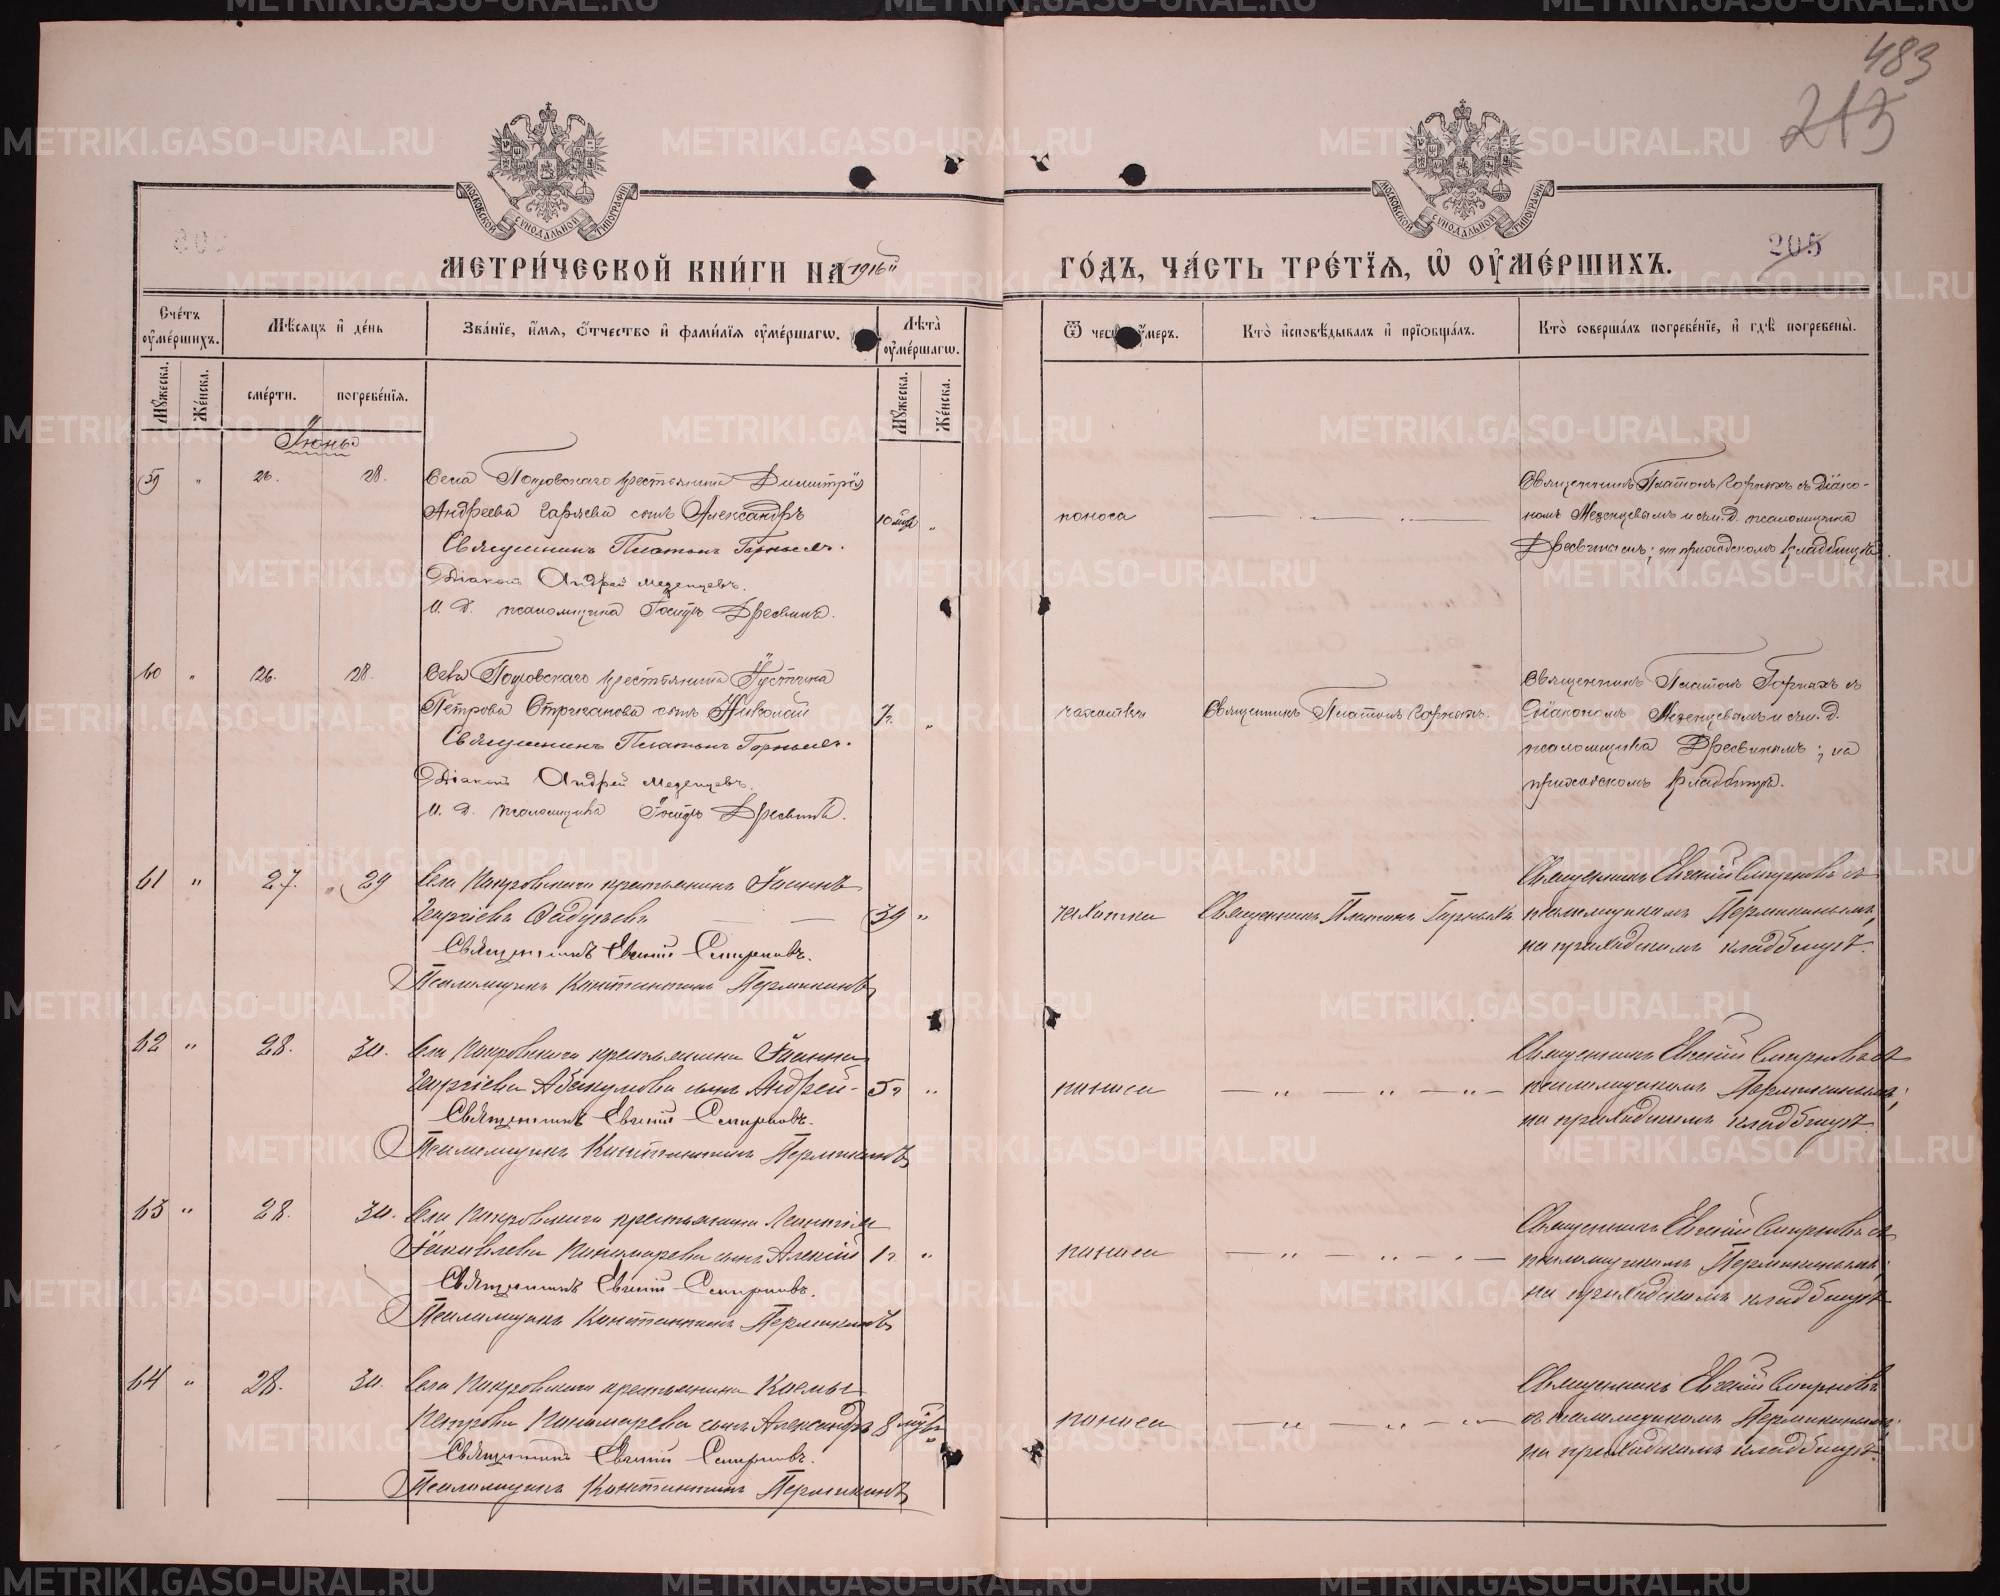 483
213
205
МОСКОВСКОЙ СѴНОДАЛЬНОЙ ТИПОГРАФІИ
МОСКОВСКОЙ СѴНОДАЛЬНОЙ ТИПОГРАФІИ
МЕТРИ́ЧЕСКОЙ КНИ́ГИ НА 1916й ГО́ДЪ, ЧА́СТЬ ТРЕ́ТЇѦ, Ѡ҆ ОУ҆МЕ́РШИХЪ.
Сче́тъ оу҆ме́ршихъ.
Мѣ́сѧцъ и҆ де́нь
Зва́нїе, и҆́мѧ, ѻ҆́тчество и҆ фами́лїѧ оу҆ме́ршагѡ.
Лѣ́та оу҆ме́ршагѡ.
Ѿ чего̀ оу҆́меръ.
Кто̀ и҆сповѣ́дывалъ и҆ прїѡбща́лъ.
Кто̀ соверша́лъ погребе́нїе, и҆ гдѣ̀ погребены̀.
Мꙋ́жеска.
Же́нска.
сме́рти.
погребе́нїѧ.
Мꙋ́жеска.
Же́нска.
Іюнь
59 " 26. 28. Села Покровскаго крестьянина Димитрія
Андреева Гаряева сынъ Александръ 10 мѣс "
Священникъ Платонъ Горныхъ.
Діаконъ Андрей Мезенцевъ.
И. д. псаломщика Іосифъ Дресвинъ.
поноса
Священникъ Платонъ Горныхъ съ Діако-
номъ Мезенцевымъ и исп. д. псаломщика
Дресвинымъ; на приходскомъ кладбищѣ.
60 " 26. 28. Села Покровскаго крестьянина Іустина
Петрова Стриганова сынъ Николай 7г. "
Священникъ Платонъ Горныхъ.
Діаконъ Андрей Мезенцевъ.
И. д. псаломщика Іосифъ Дресвинъ.
чахотки Священникъ Платонъ Горныхъ.
Священникъ Платонъ Горныхъ съ
Діакономъ Мезенцевымъ и исп. д.
псаломщика Дресвинымъ; на
приходскомъ кладбищѣ.
61 " 27. 29 Села Покровскаго крестьянинъ Іоаннъ
Георгіевъ 39 "
Священникъ Евгеній Смирновъ.
Псаломщикъ Константинъ Пермикинъ
чахотки Священникъ Платонъ Горныхъ
Священникъ Евгеній Смирновъ съ
псаломщикомъ Пермикинымъ,
на приходскомъ кладбищѣ.
62 " 28. 30. Села Покровскаго крестьянина Іоанна
Георгіева Абакумова сынъ Андрей 5г "
Священникъ Евгеній Смирновъ.
Псаломщикъ Константинъ Пермикинъ
поноса — " — " — " —
Священникъ Евгеній Смирновъ съ
псаломщикомъ Пермикинымъ;
на приходскомъ кладбищѣ.
63 " 28. 30. Села Покровскаго крестьянина Леонтія
Іаковлева Пономарева сынъ Алексій 1г. "
Священникъ Евгеній Смирновъ.
Псаломщикъ Константинъ Пермикинъ
поноса — " — " — " —
Священникъ Евгеній Смирновъ съ
псаломщикомъ Пермикинымъ;
на приходскомъ кладбищѣ
64 " 28. 30. Села Покровскаго крестьянина Космы
Петрова Пономарева сынъ Александръ 8 мѣс "
Священникъ Евгеній Смирновъ.
Псаломщикъ Константинъ Пермикинъ
поноса — " — " — " —
Священникъ Евгеній Смирновъ
съ псаломщикомъ Пермикинымъ;
на приходскомъ кладбищѣ.
METRIKI.GASO-URAL.RU